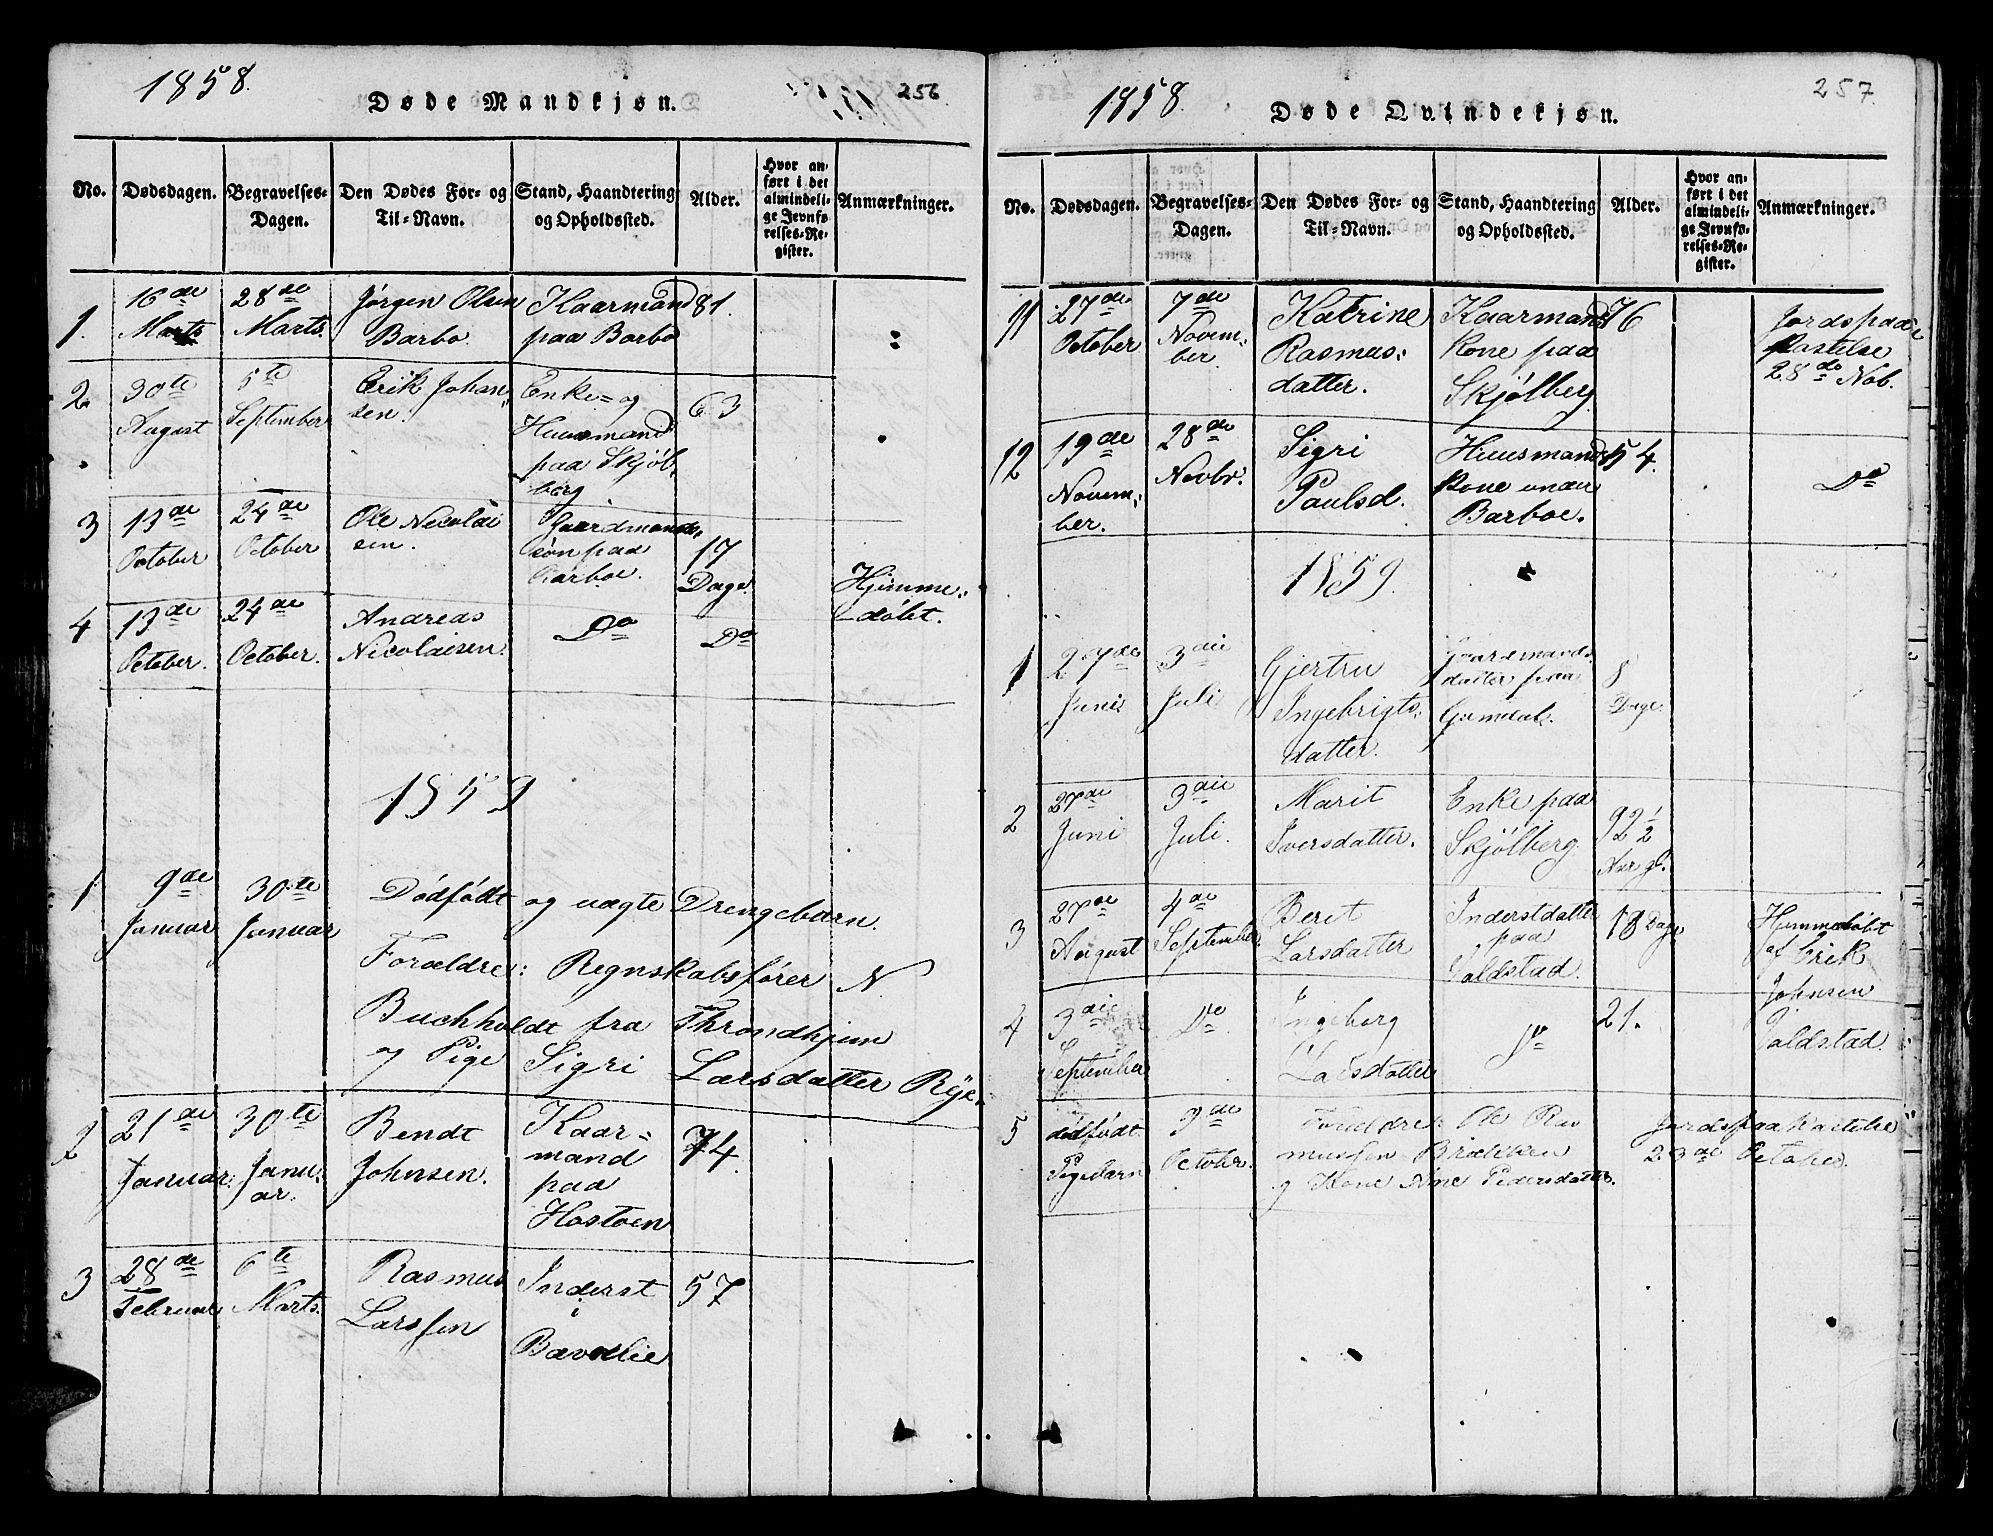 1858.
Døde Mandkjøn.
256
No.
Dødsdagen.
Begravelses-
Dagen.
Den Dødes For- og
Til-Navn.
Stand, Haandtering
og Opholdssted.
Alder.
Hvor an-
ført i det
almindeli-
ge Jevnfø-
relses-Re-
gister.
Anmærkninger.
1.
16de
Marts
28de
Marts
Jørgen Olsen
Barbo.
Kaarmand
paa Barbo
81.
2
30te
August
5te
September
Erik Johan-
sen.
Enke- og
Huusmand
paa Skjøl-
berg
63
3
13de
October
24de
October
Ole Nicolai
sen.
Gaardmands-
søn paa
Barboe.
17
Dage.
4
13de
October.
24de
October.
Andreas
Nicolaisen.
Do
Do
Hjemme-
døbt.
1859
1
9de
Januar
30te
Januar
Dødfødt og uægte Drengebarn.
Forældre: Regnskabsfører N
Buchholdt fra Throndhjem
og Pige Sigri Larsdatter Rye.
2
21de
Januar.
30te
Janu-
ar.
Bendt
Johnsen.
Kaar-
mand
paa
Hostoen
74.
3
28de
Februar
6te
Marts.
Rasmus
Larssen
Inderst
i
Bævelie
57
1858.
Døde Qvindekjøn.
257.
No.
Dødsdagen.
Begravelses-
Dagen.
Den Dødes For- og
Til-Navn.
Stand, Haandtering
og Opholdssted.
Alder.
Hvor an-
ført i det
almindeli-
ge Jevnfø-
relses-Re-
gister.
Anmærkninger.
11
27de
October
7de
Novem-
ber.
Katrine
Rasmus-
datter.
Kaarmands
Kone paa
Skjølberg
76
Jordspaa
kastelse
28de Nob.
12
19de
Novem-
ber.
28de
Novbr.
Sigri
Paulsd.
Huusmands
Kone under
Barboe.
54.
Do
1859.
1
27de
Juni
3die
Juli
Gjertru
Ingebrigts-
datter.
Gaardmands-
datter paa
8
Dage.
2
27de
Juni
3die
Juli.
Marit
Iversdatter.
Enke paa
Skjølberg.
92½
Aar gl.
3
27de
August
4de
September
Beret
Larsdatter
Inderstdatter
paa
Valdstad.
18 Dage
Hjemmedøbt
af Erik
Johnsen
Valdstad.
4
3die
September
Do
Ingeborg
Larsdatter
Do
21.
5
dødfødt
Pigebarn
9de
October.
Forældre: Ole Ras
mussen Brækken
og Kone Ane Pedersdatter.
Jordspaakastelse
23de October.